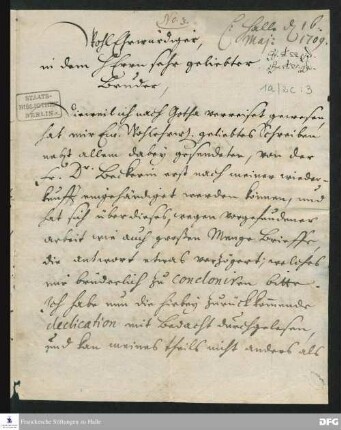 No 3.
Halle d. 16.
Maj. 1709.
WohlEhrwürdiger,
in dem HErrn sehr geliebter
Bruder,
1a/2c:3
STAATS-
BIBLIOTHEK
BERLIN
Dieweil ich nach Gotha verreiset gewesen,
hat mir Ew. WohlEhrw. geliebtes Schreiben
nebst allem dabey gesendeten, von der
Fr. Dr. erst nach meiner wieder-
kunfft eingehändiget werden können, und
hat sich über dieses, wegen vorgefundener
arbeit wie auch großen Menge Brieffe
die antwort etwas verzögert; welches
mir brüderlich zu condoniren bitte.
Ich habe nun die hiebey zurückkommende
dedication mit Bedacht durchgelesen,
und kan meines theils nicht anders als
Franckesche Stiftungen zu Halle
DFG